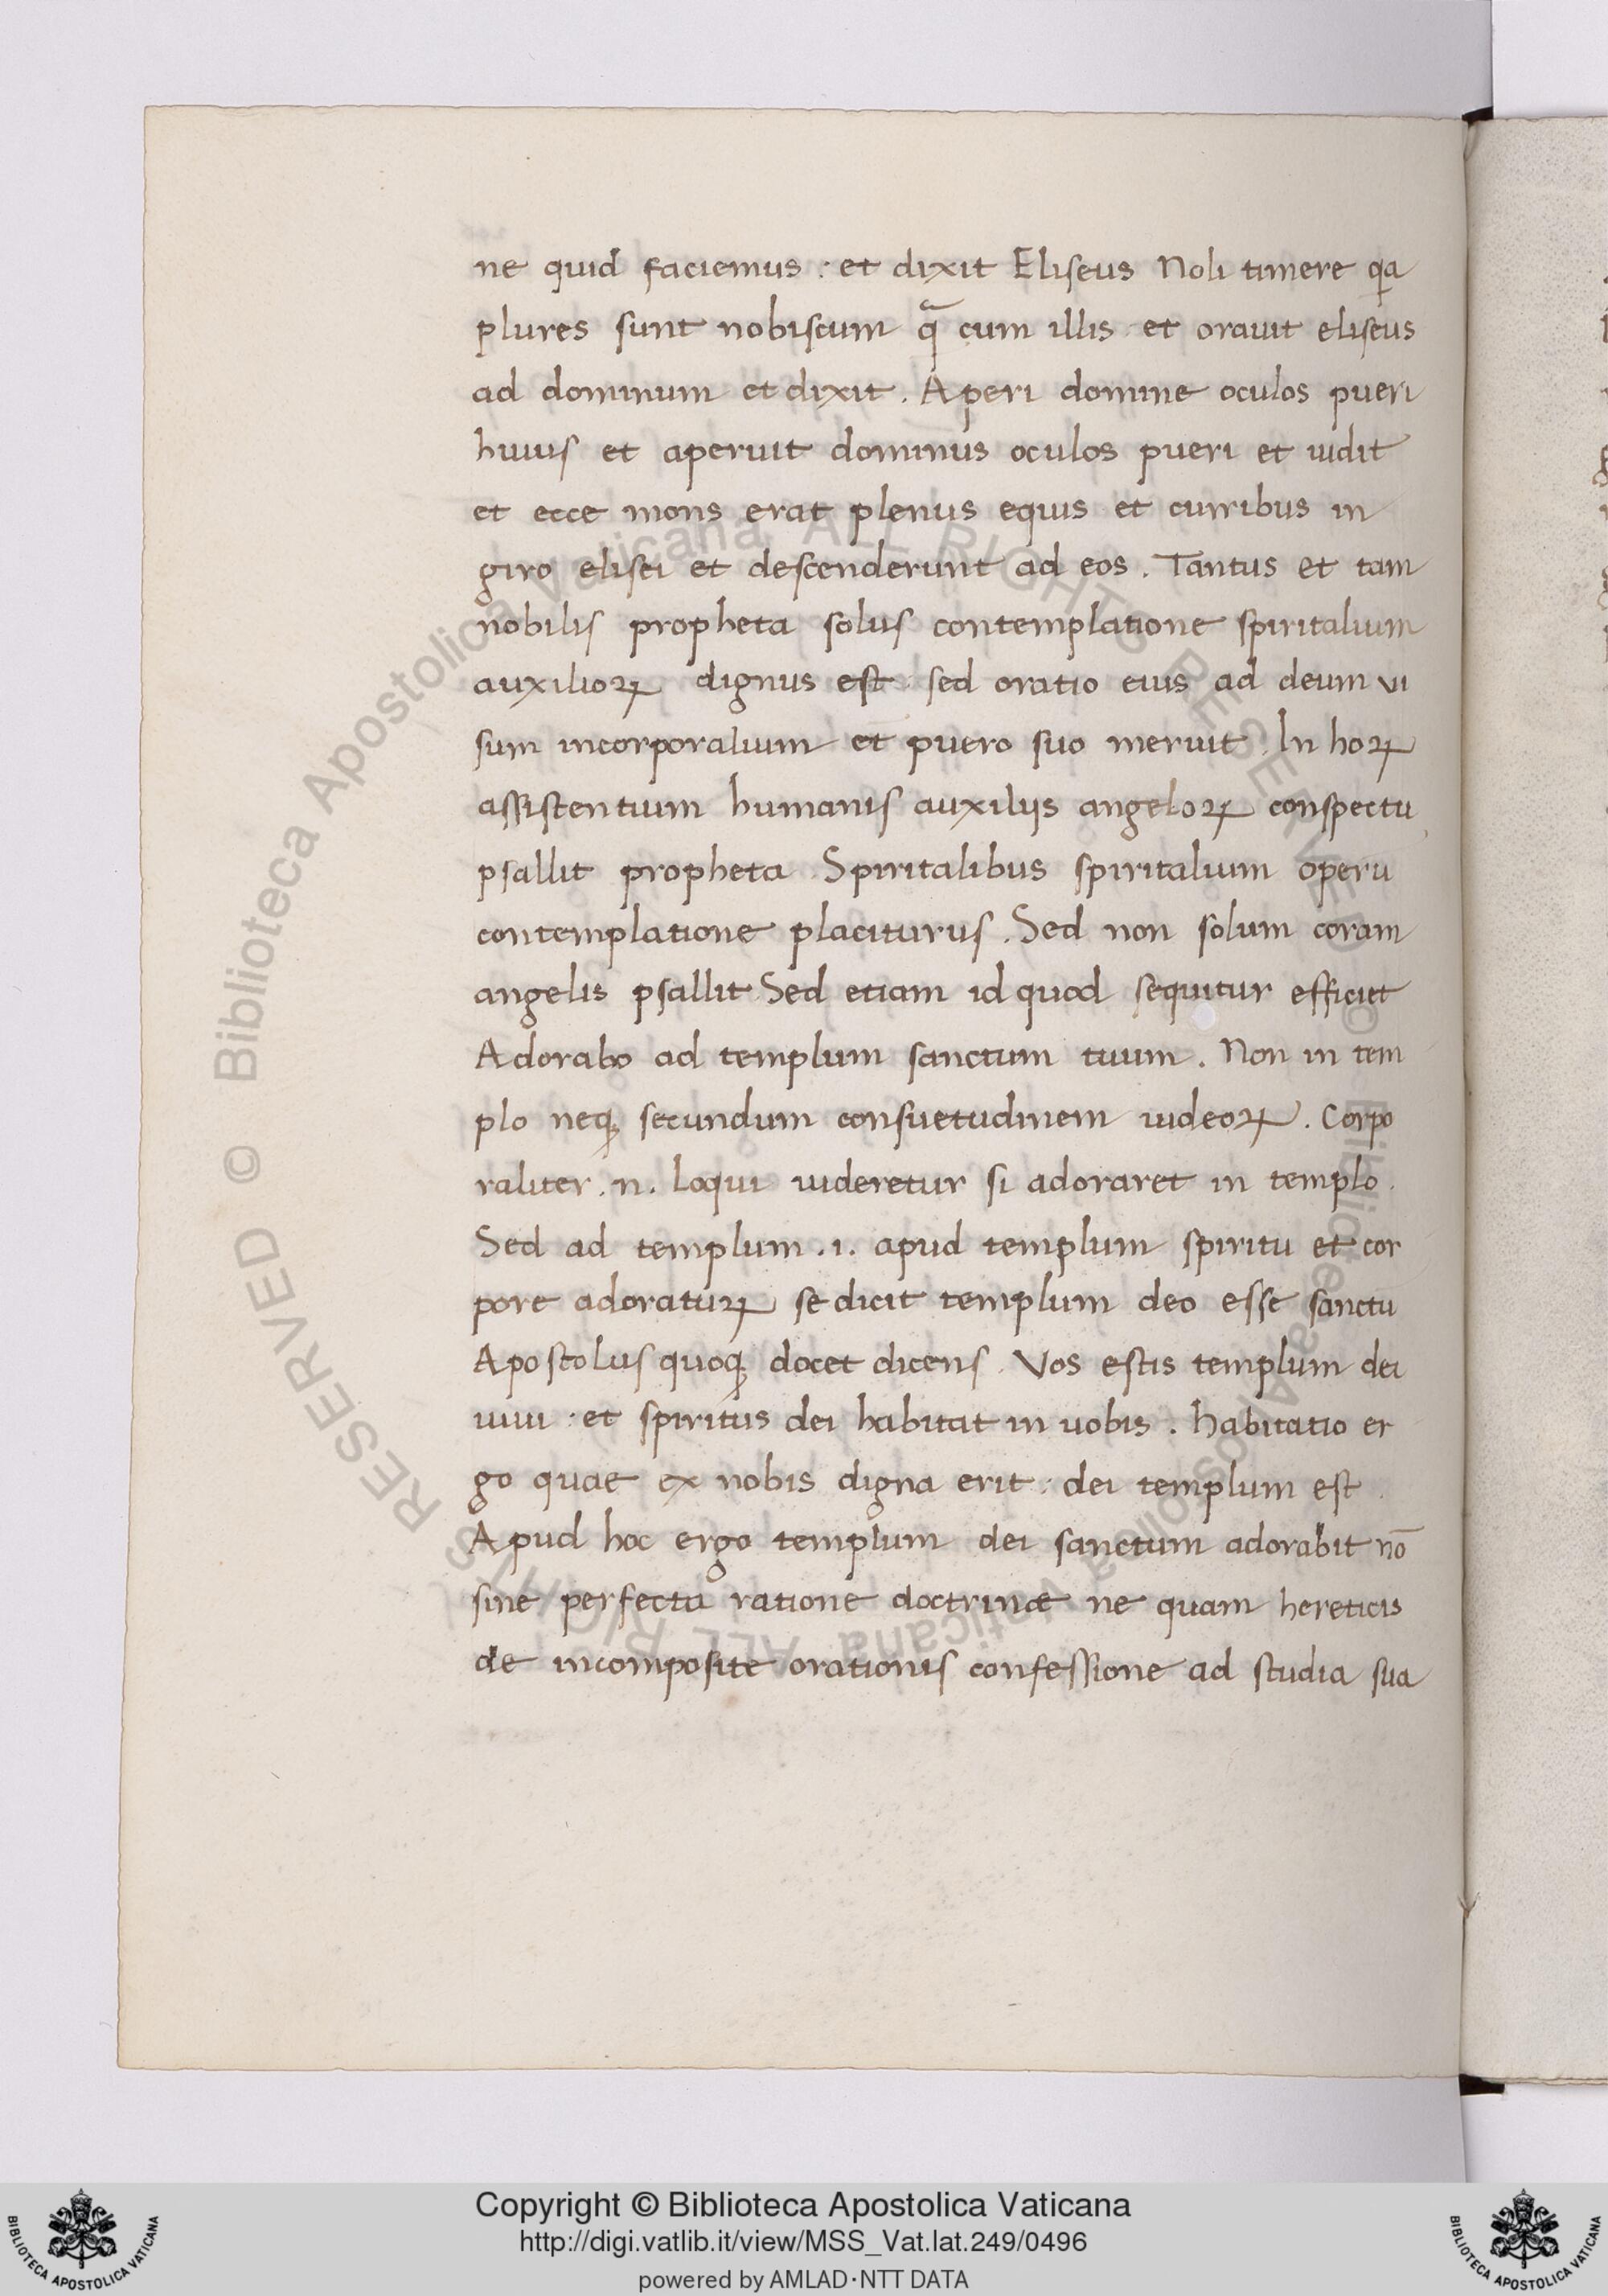 ne quid faciemus : et dixit Eliseus Noli timere qa
plures sunt nobiscum q̃ cum illis . et orauit eliseus
ad dominum et dixit . Aperi domine oculos pueri
huius et aperuit dominus oculos pueri et uidit
et ecce mons erat plenus equis et curribus in
giro elisei et descenderunt ad eos . Tantus et tam
nobilis propheta solus contemplatione spiritalium
auxilioꝝ dignus est . sed oratio eius ad deum ui
sum incorporalium et puero suo meruit . In hoꝝ
assistentium humanis auxilijs angeloꝝ conspectu
psallit propheta . Spiritalibus spiritalium operū
contemplatione placiturus . Sed non solum coram
angelis psallit Sed etiam id quod sequitur efficiet
Adorabo ad templum sanctum tuum . Non in tem
plo neqꝫ secundum consuetudinem iudeoꝝ . Corpo
raliter . n . loqui uideretur si adoraret in templo .
Sed ad templum . i . apud templum spiritu et cor
pore adoratuꝝ se dicit templum deo esse sanctū
Apostolus quoqꝫ docet dicens . Vos estis templum dei
uiui : et spiritus dei habitat in uobis . habitatio er
go quae ex nobis digna erit : dei templum est .
Apud hoc ergo templum dei sanctum adorabit nō
sine perfectū ratione doctrinæ ne quam hereticis
de incomposite orationis confessione ad studia sua
Copyright © Biblioteca Apostolica Vaticana
http://digi.vatlib.it/view/MSS_Vat.lat.249/0496
powered by AMLAD·NTT DATA